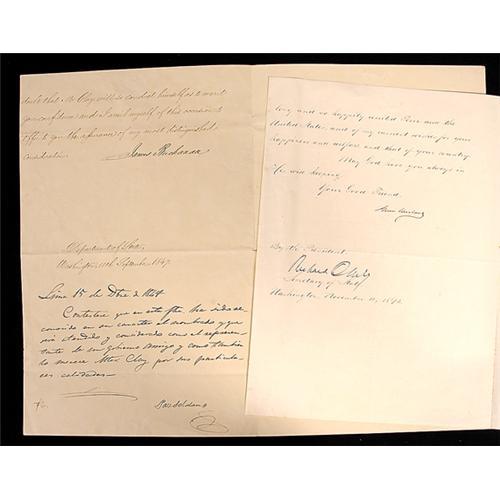 doubt that Mr Clay will so conduct himself as to merit
your confidence and I avail myself of this occasion to
offer to you the assurance of my most distinguished
consideration.
James Buchanan
Department of State
Washington, 11th September 1847.
Lima 15 de Dbre de 1847
Contestese que en esta fha ha sido re
conocido en su caracter el nombrado y que
sera atendido y considerado como el represen
tante de un gobierno amigo y como tambien
lo merece Mter Clay, por sus particula
res calidades
long and so happily united Peru and the
United States, and of my earnest wishes for your
happiness and welfare and that of your country.
May God have you always in
His wise keeping.
Your Good Friend,
By the President:
Richard Olney
Secretary of State
Washington, November 11, 1895.